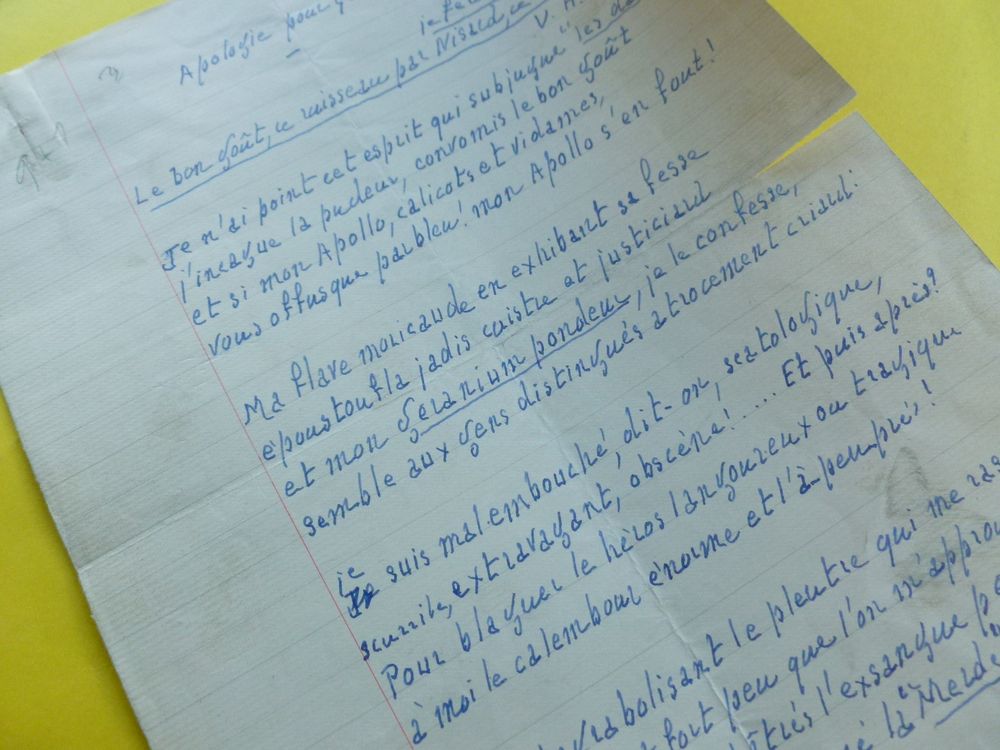 Apologie pour
V. H.
Le bon goût, ce ruisseau par Nisard, ce
Je n'ai point cet esprit qui subjugue "les da
j'incague la pudeur, convomis le bon goût
et si mon Apollo, calicots et vidames,
vous offusque parbleu! mon Apollo s'en fout!
Ma flave moricaude en exhibant sa fesse
époustoufla jadis cuistre et justiciard
et mon Geranium pondeur, je le confesse,
semble aux gens distingués atrocement criard:
je suis malembouché, dit-on, scatologique,
scurrile, extravagant, obscène!.... Et puis après?
Pour blaguer le héros langoureux ou tragique
à moi le calembour énorme et l'à-peu-près!
bolisant le pleutre qui me ras
fort peu que l'on m'appro
l'exsangue
la "Merde